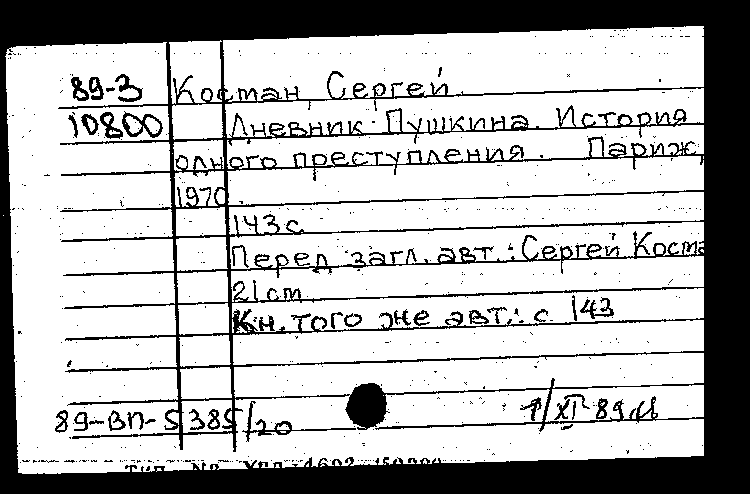 89-3 Костан, Сергей.
10800 Дневник Пушкина. История
одного преступления. Париж,
1970.
143 с
Перед загл. авт.: Сергей Коста
21 cm
Кн. того же авт.: с 143
89-ВП-5385/20 1/XI-89